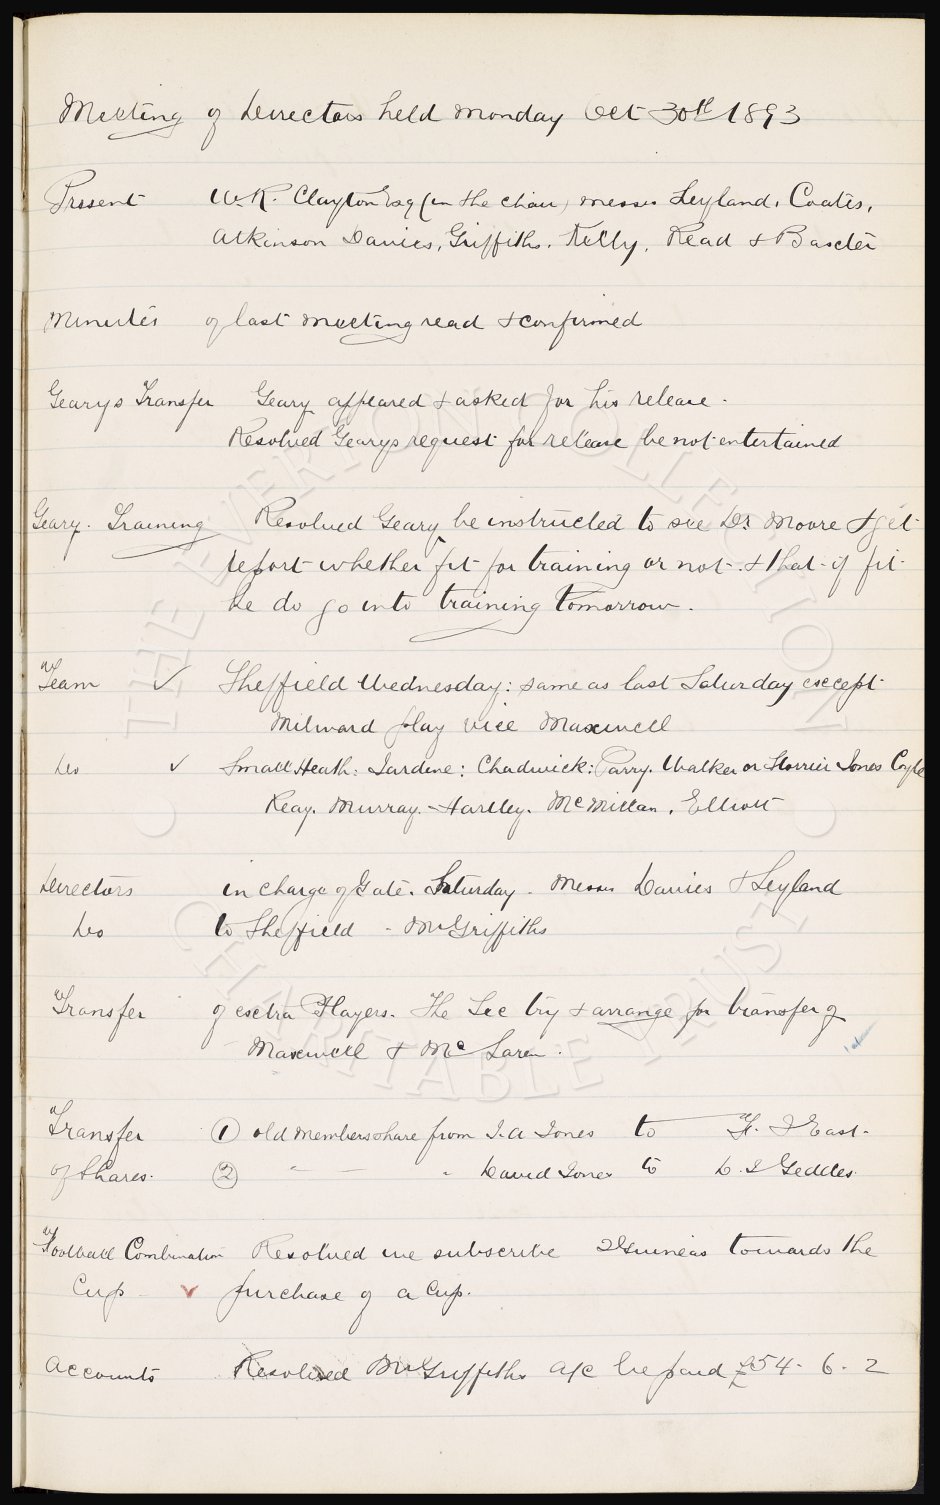 Meeting of Directors held Monday Oct 30th 1893
Present W. R. Clayton Esq (in the chair) Messrs Leyland, Coates,
Atkinson Davies, Griffiths, Kelly, Read & Baxter
Minutes of last meeting read & confirmed
Gearys Transfer Geary appeared & asked for his release.
Resolved Gearys request for release be not entertained
Geary. Training Resolved Geary be instructed to see Dr Moore & get
report whether fit for training or not. & that if fit
he do go into training tomorrow.
Team ✓ Sheffield Wednesday: same as last Saturday except
Milward play vice Maxwell
Do ✓ Small Heath: Jardine: Chadwick: Parry. Walker or Storrier Jones Coyle
Reay. Murray. Hartley. McMillan. Elliott
Directors in charge of Gate. Saturday. Messrs Davies & Leyland
Do to Sheffield - Mr Griffiths
Transfer of extra Players. The Sec try & arrange for transfer of
Maxwell & McLaren.
Transfer ① old members share from J. A Jones to F. J East.
of Shares. ② " — " David Jones to D. J Geddes.
Football Combination Resolved we subscribe 2 Guineas towards the
Cup ✓ purchase of a Cup.
Accounts Resolved Mr Griffiths a/c be paid £54. 6. 2
THE EVERTON COLLECTION
CHARITABLE TRUST